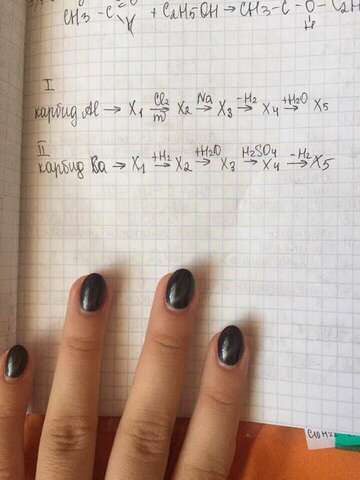 CH3-C + C2H5OH → CH3-C-O-C2H
H
I
карбид Al → X1 Cl2 → X2 Na → X3 -H2 → X4 +H2O → X5
II
карбид Ba → X1 +H2 → X2 +H2O → X3 H2SO4 → X4 -H2 → X5